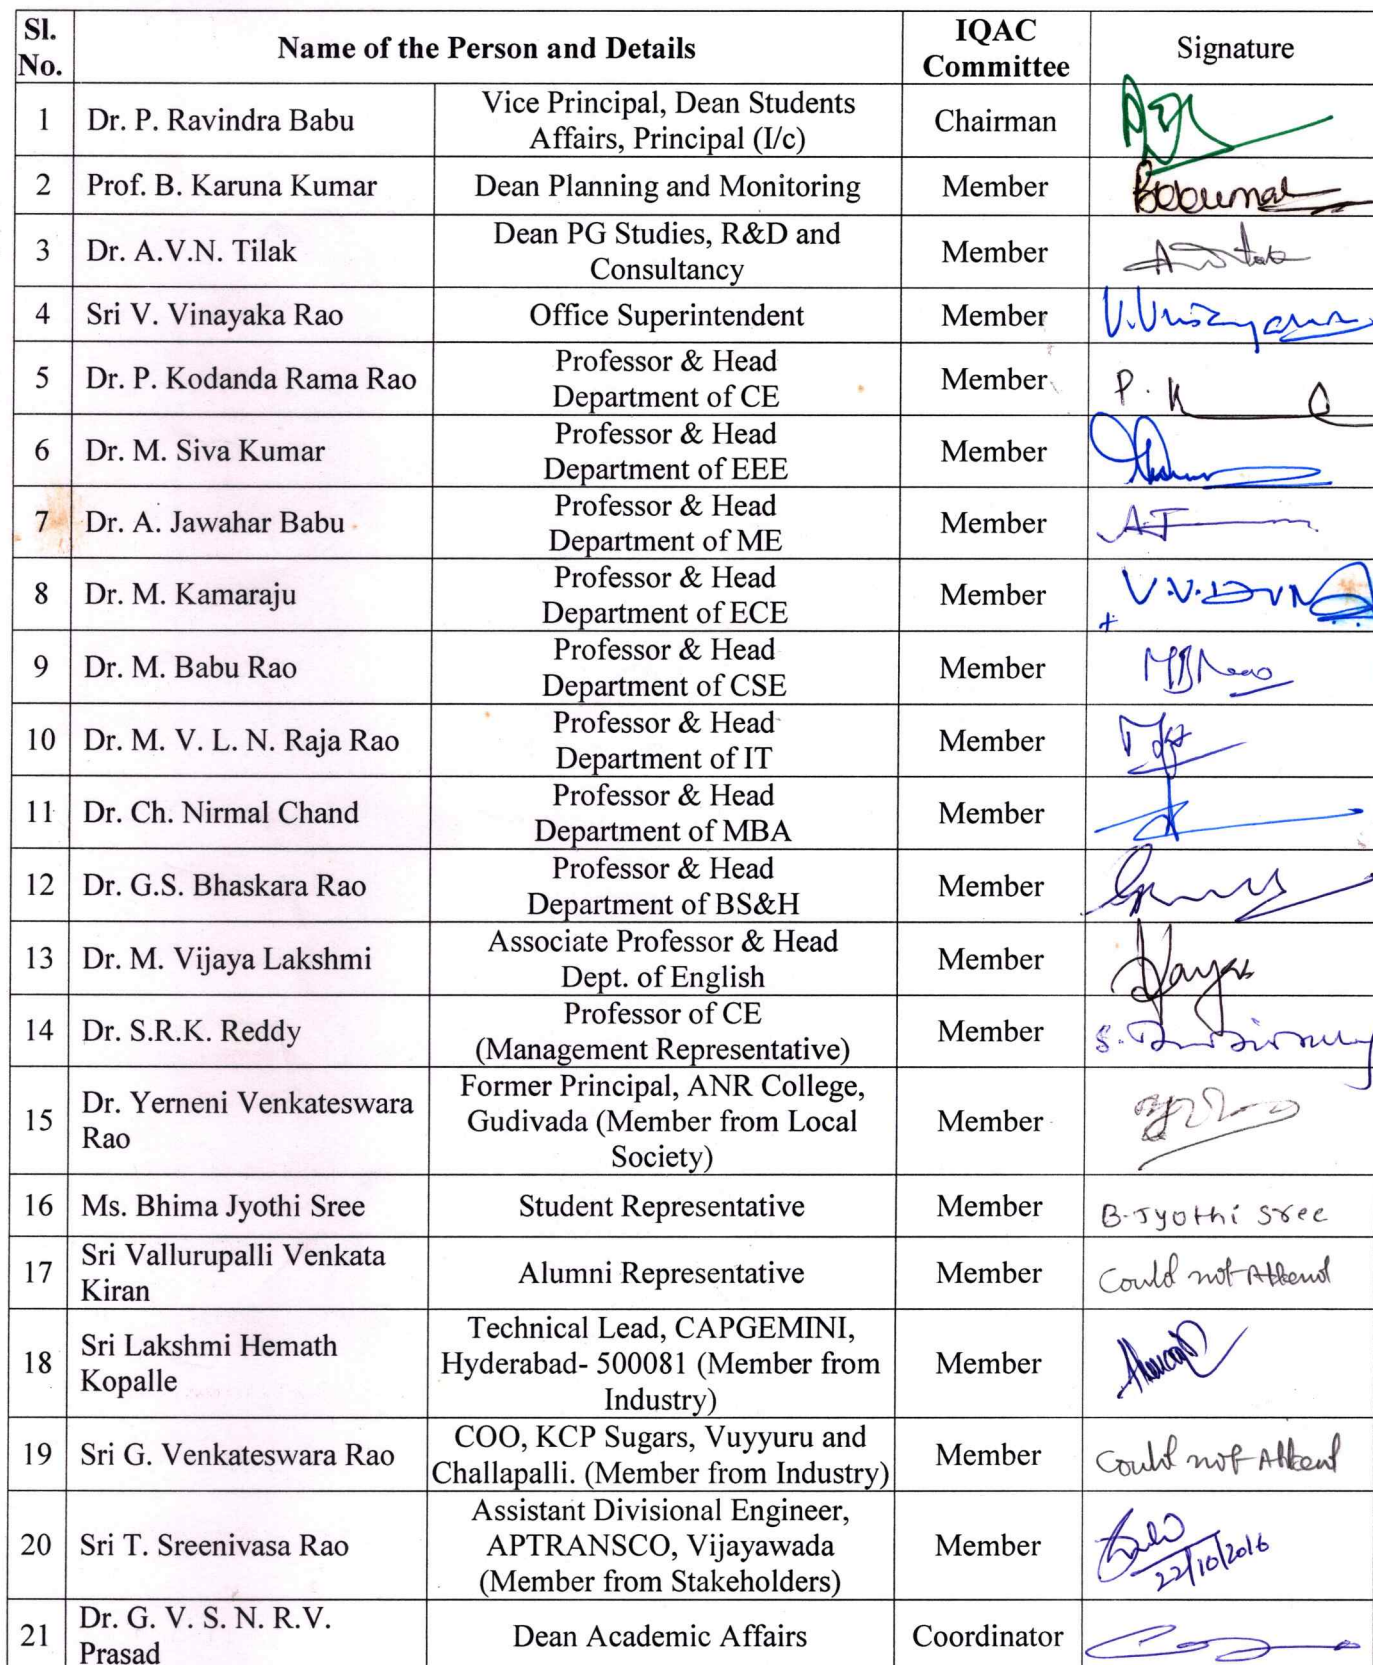 Sl. No.
Name of the Person and Details
IQAC Committee
Signature
1 Dr. P. Ravindra Babu Vice Principal, Dean Students
Affairs, Principal (I/c) Chairman
2 Prof. B. Karuna Kumar Dean Planning and Monitoring Member
3 Dr. A.V.N. Tilak Dean PG Studies, R&D and
Consultancy Member
4 Sri V. Vinayaka Rao Office Superintendent Member
5 Dr. P. Kodanda Rama Rao Professor & Head
Department of CE Member
6 Dr. M. Siva Kumar Professor & Head
Department of EEE Member
7 Dr. A. Jawahar Babu Professor & Head
Department of ME Member
8 Dr. M. Kamaraju Professor & Head
Department of ECE Member
9 Dr. M. Babu Rao Professor & Head
Department of CSE Member
10 Dr. M. V. L. N. Raja Rao Professor & Head
Department of IT Member
11 Dr. Ch. Nirmal Chand Professor & Head
Department of MBA Member
12 Dr. G.S. Bhaskara Rao Professor & Head
Department of BS&H Member
13 Dr. M. Vijaya Lakshmi Associate Professor & Head
Dept. of English Member
14 Dr. S.R.K. Reddy Professor of CE
(Management Representative) Member
15 Dr. Yerneni Venkateswara
Rao Former Principal, ANR College,
Gudivada (Member from Local
Society) Member
16 Ms. Bhima Jyothi Sree Student Representative Member B. Jyothi Sree
17 Sri Vallurupalli Venkata
Kiran Alumni Representative Member Could not Attend
18 Sri Lakshmi Hemath
Kopalle Technical Lead, CAPGEMINI,
Hyderabad- 500081 (Member from
Industry) Member
19 Sri G. Venkateswara Rao COO, KCP Sugars, Vuyyuru and
Challapalli. (Member from Industry) Member Could not Attend
20 Sri T. Sreenivasa Rao Assistant Divisional Engineer,
APTRANSCO, Vijayawada
(Member from Stakeholders) Member 22/10/2016
21 Dr. G. V. S. N. R.V.
Prasad Dean Academic Affairs Coordinator